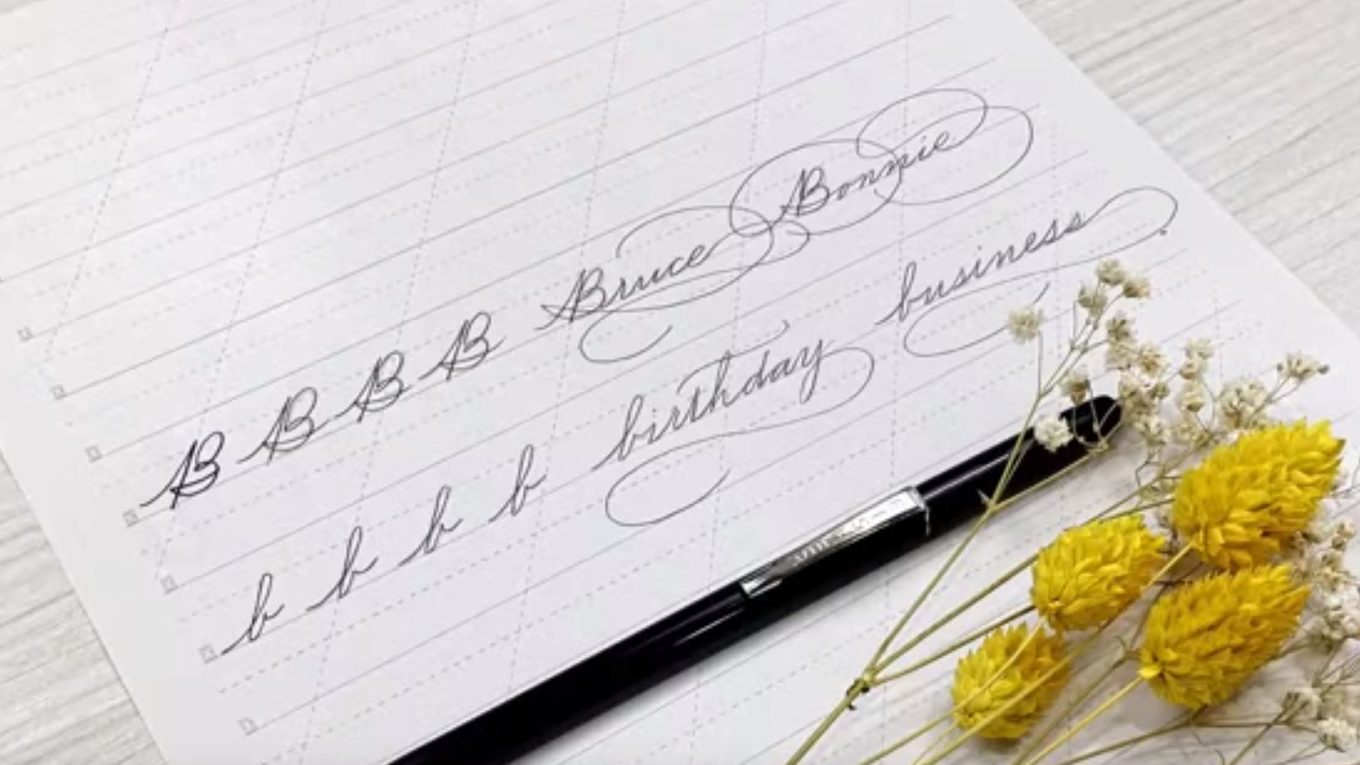 B B B B Bruce Bonnie
b b b b birthday business